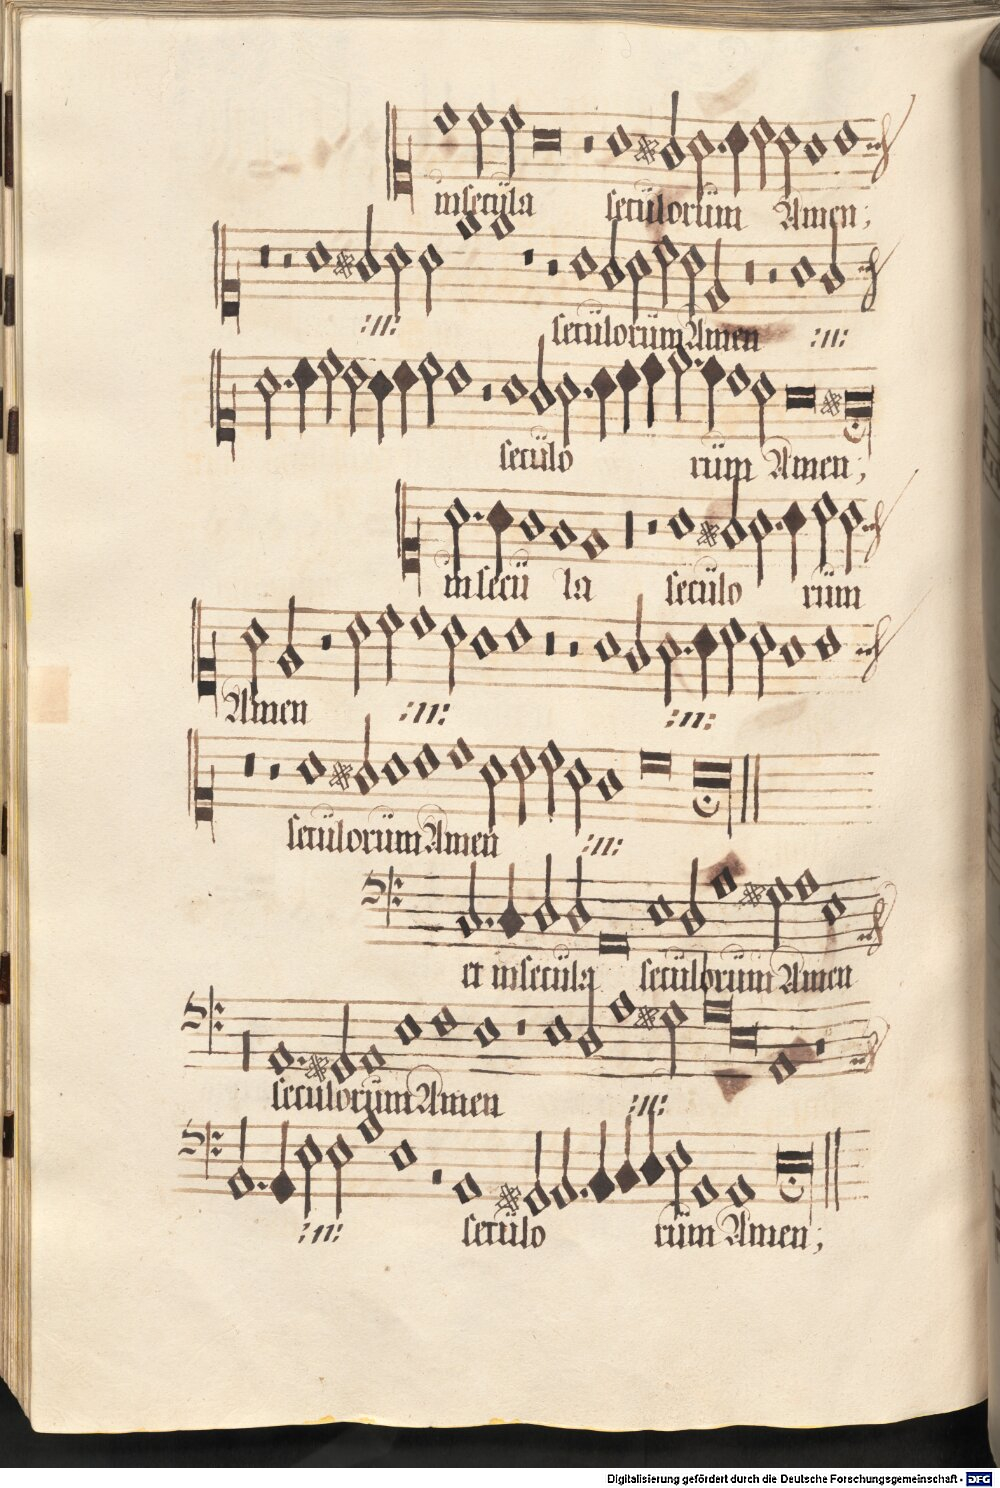 in secüla secülorüm Amen;
:11: secülorüm Amen :11:
secülo rüm Amen;
in secü la secülo rüm
Amen :11: :11:
secülorüm Amen :11:
et in secüla secülorüm Amen
secülorüm Amen :11:
:11: secülo rüm Amen;
Digitalisierung gefördert durch die Deutsche Forschungsgemeinschaft - DFG